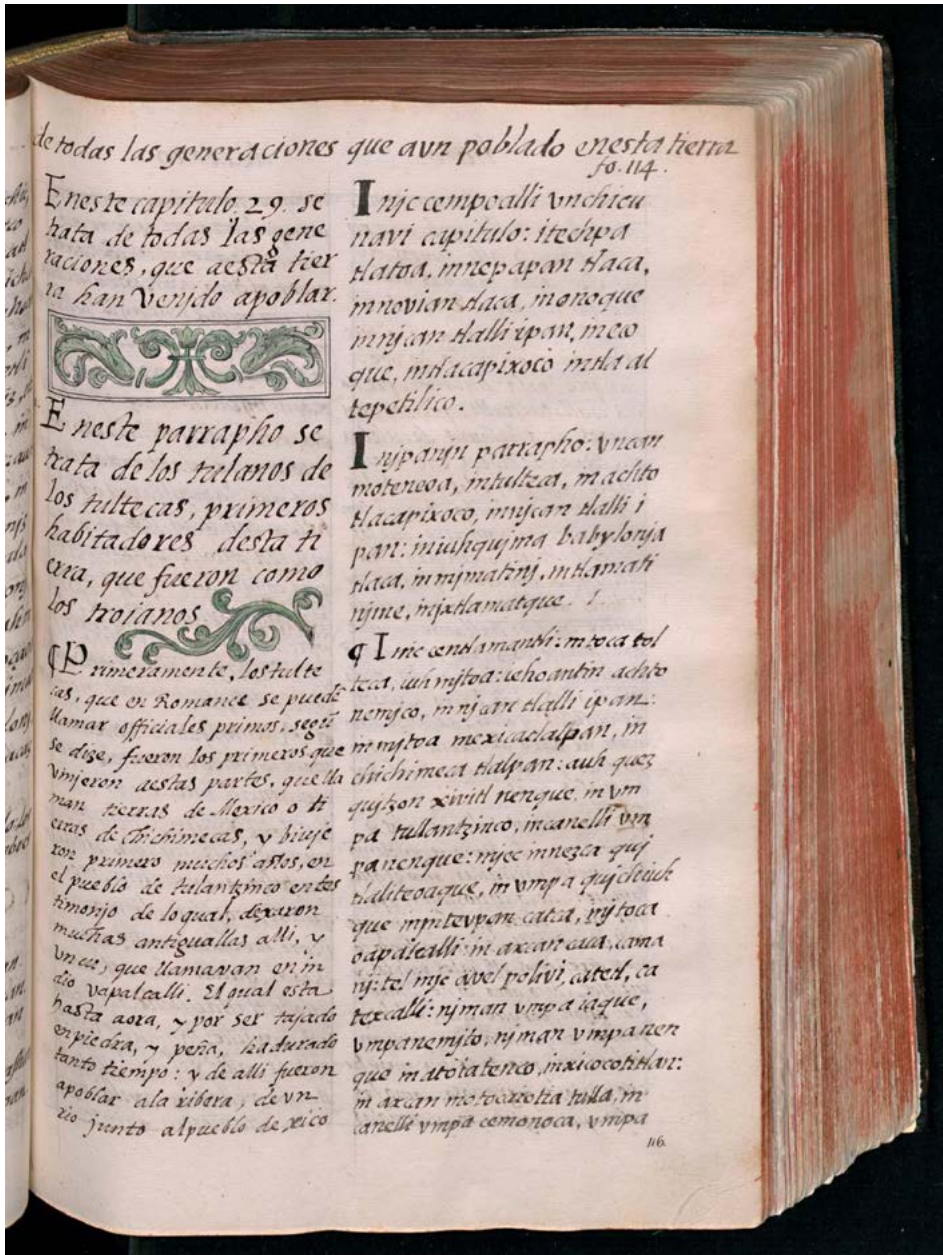 de todas las generaciones que avn poblado enesta tierra
fo. 114.
Eneste capitulo. 29. se
trata de todas las gene
raciones, que aesta tier
ra han venjdo apoblar.
Eneste parrapho se
trata de los tulanos de
los tultecas, primeros
habitadores desta ti
erra, que fueron como
los troianos
¶ Primeramente, los tulte
cas, que en Romance se puedē
llamar officiales primos, segū
se dize, fueron los primeros que
vinjeron aestas partes, que lla
man tierras de Mexico o ti
erras de Chichimecas, y biuje
ron primero muchos años, en
el pueblo de tulantzinco entes
timonjo de lo qual, dexaron
muchas antiguallas alli, y
vn cu, que llamavan en in
dio vapalcalli. El qual esta
hasta aora, y por ser tajado
en piedra, y peña, ha durado
tanto tiempo: y de alli fueron
apoblar ala ribera, de vn
rio junto alpueblo de xico
Injc cempoalli vnchicu
navi capitulo: itechpa
tlatoa, in nepapan tlaca,
in novian tlaca, in onoque
in njcan tlalli ipan, in eco
que, in tlacapixoco in tla al
tepetlilico.
Injpanjn parrapho: vncan
moteneoa, in tulteca, in achto
tlacapixoco, in njcan tlalli i
pan: in iuhqujma babylonja
tlaca, in mjmatinj, in tlamati
njme, in jxtlamatque.
¶ Injc centlamantli: in toca tol
teca, iuh mjtoa: iehoantin achto
nemjco, in njcan tlalli ipan:
in mjtoa mexicatlalpan, in
chichimeca tlalpan: auh quez
qujtzon xivitl nenque, in vm
pa tullantzinco, in canelli vm
pa nenque: mjec in nezca quj
tlaliteoaque, in vmpa qujchiuh
que in inteupan catca, injtoca
oapalcalli: in axcan caca, cama
nj: tel injc avel polivi, ca tetl, ca
texcalli: njman vmpa iaque,
vmpa nemjto, njman vmpa nen
que in atoiatenco, in xicocotitlan:
in axcan motocaiotia tulla, in
canelli vmpa cemonoca, vmpa
116.